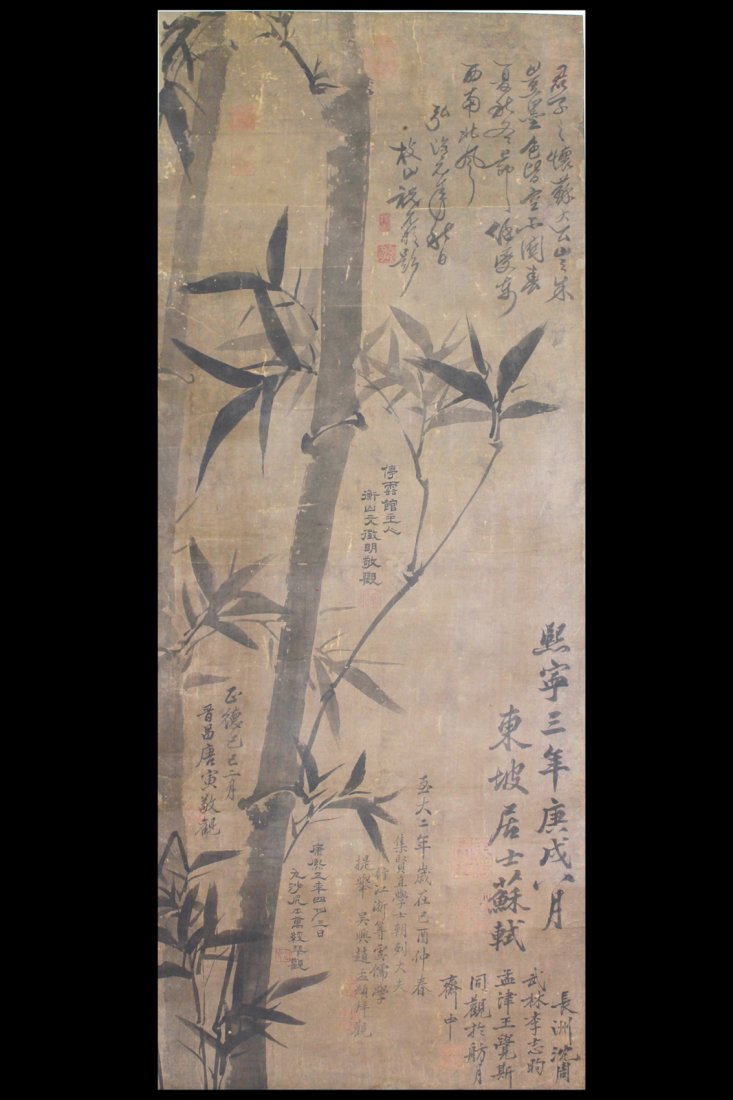 君子之懷蘇大公豈朱
豈墨色皆空不關春
夏秋冬節任從東
西南北風
弘治元年秋日
枝山祝允明題
停雲館主人
衡山文徵明敬觀
熙寧三年庚戌八月
東坡居士蘇軾
正德己巳二月
晉昌唐寅敬觀
至大二年歲在己酉仲春
集賢直學士朝列大夫
行江浙等處儒學
提舉吳興趙孟頫拜觀
康熙五年四月三日
九沙萬經觀
長洲沈周
武林李志昀
孟津王覺斯
同觀於舫月
齋中